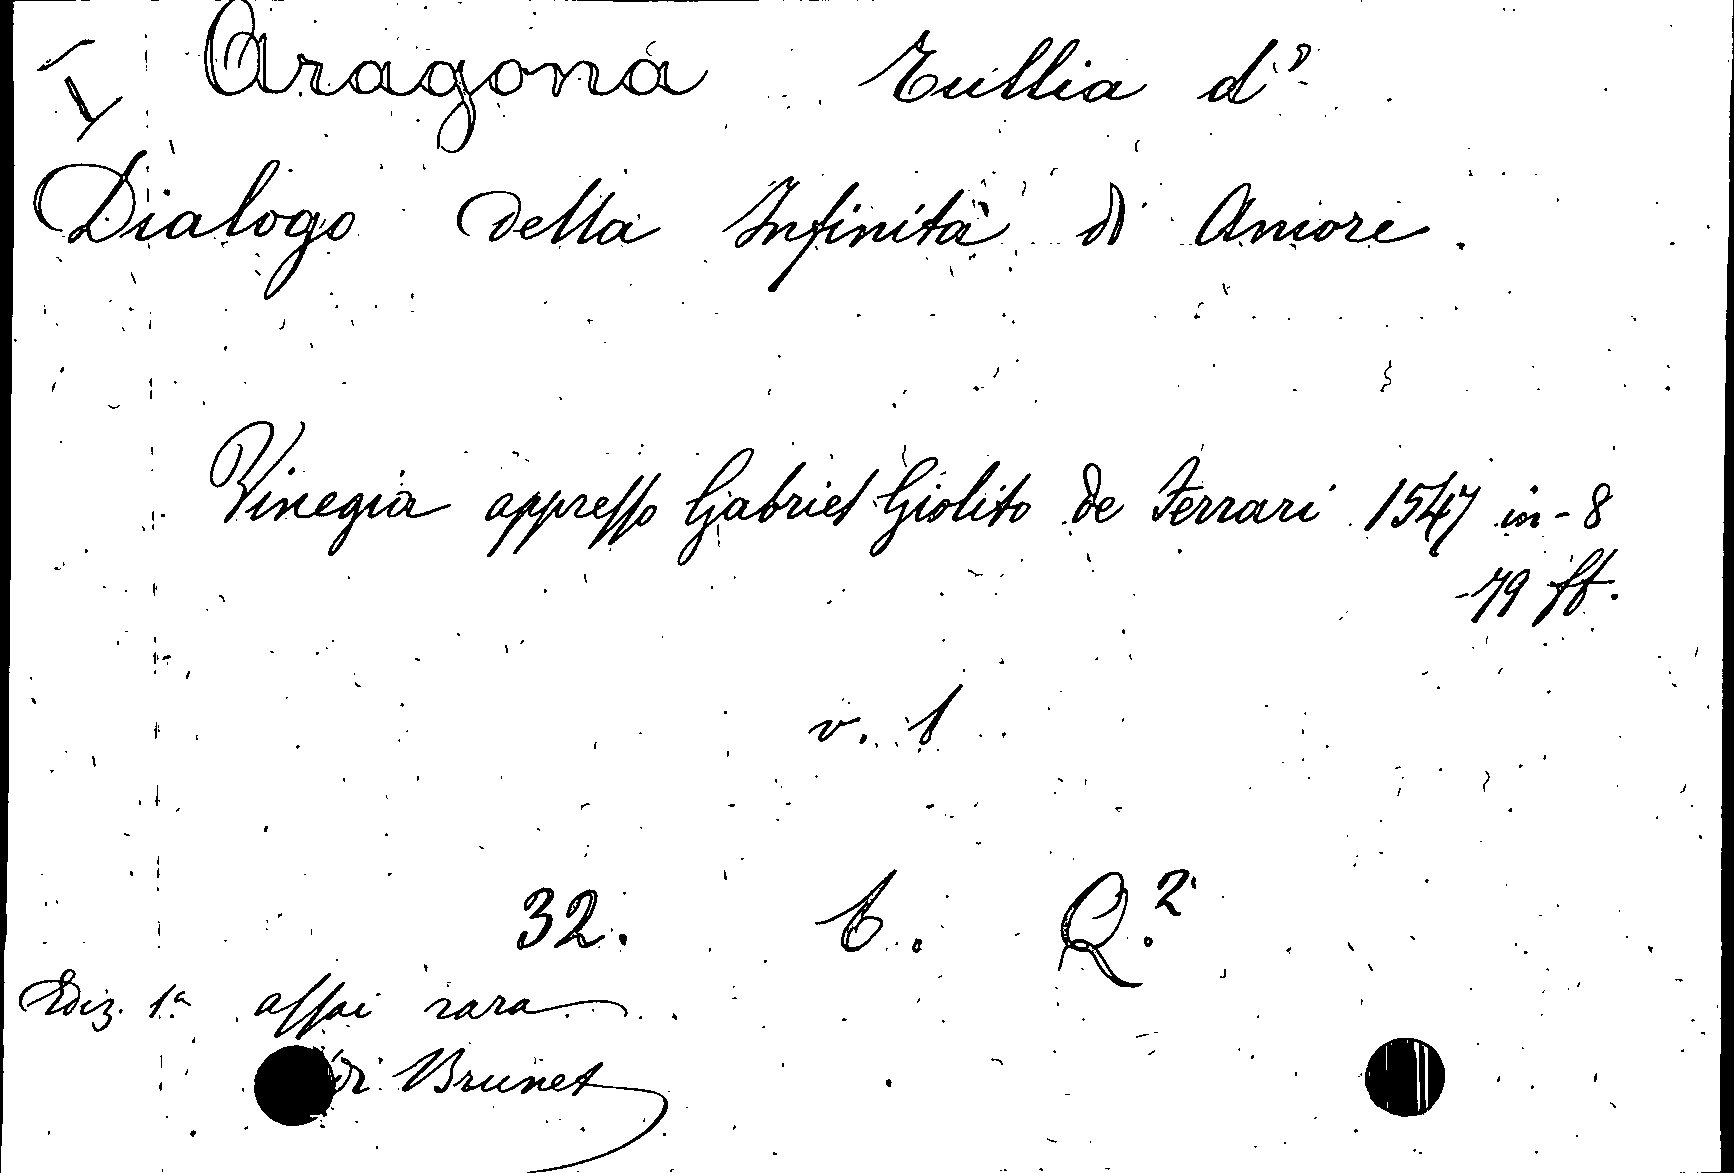 Aragona Tullia d'
Dialogo della Infinità di Amore.
Vinegia appresso Gabriel Giolito de Ferrari 1547 in-8
-79 ff.
v. 1
32. b. Q.2
Ediz. 1a assai rara
Brunet